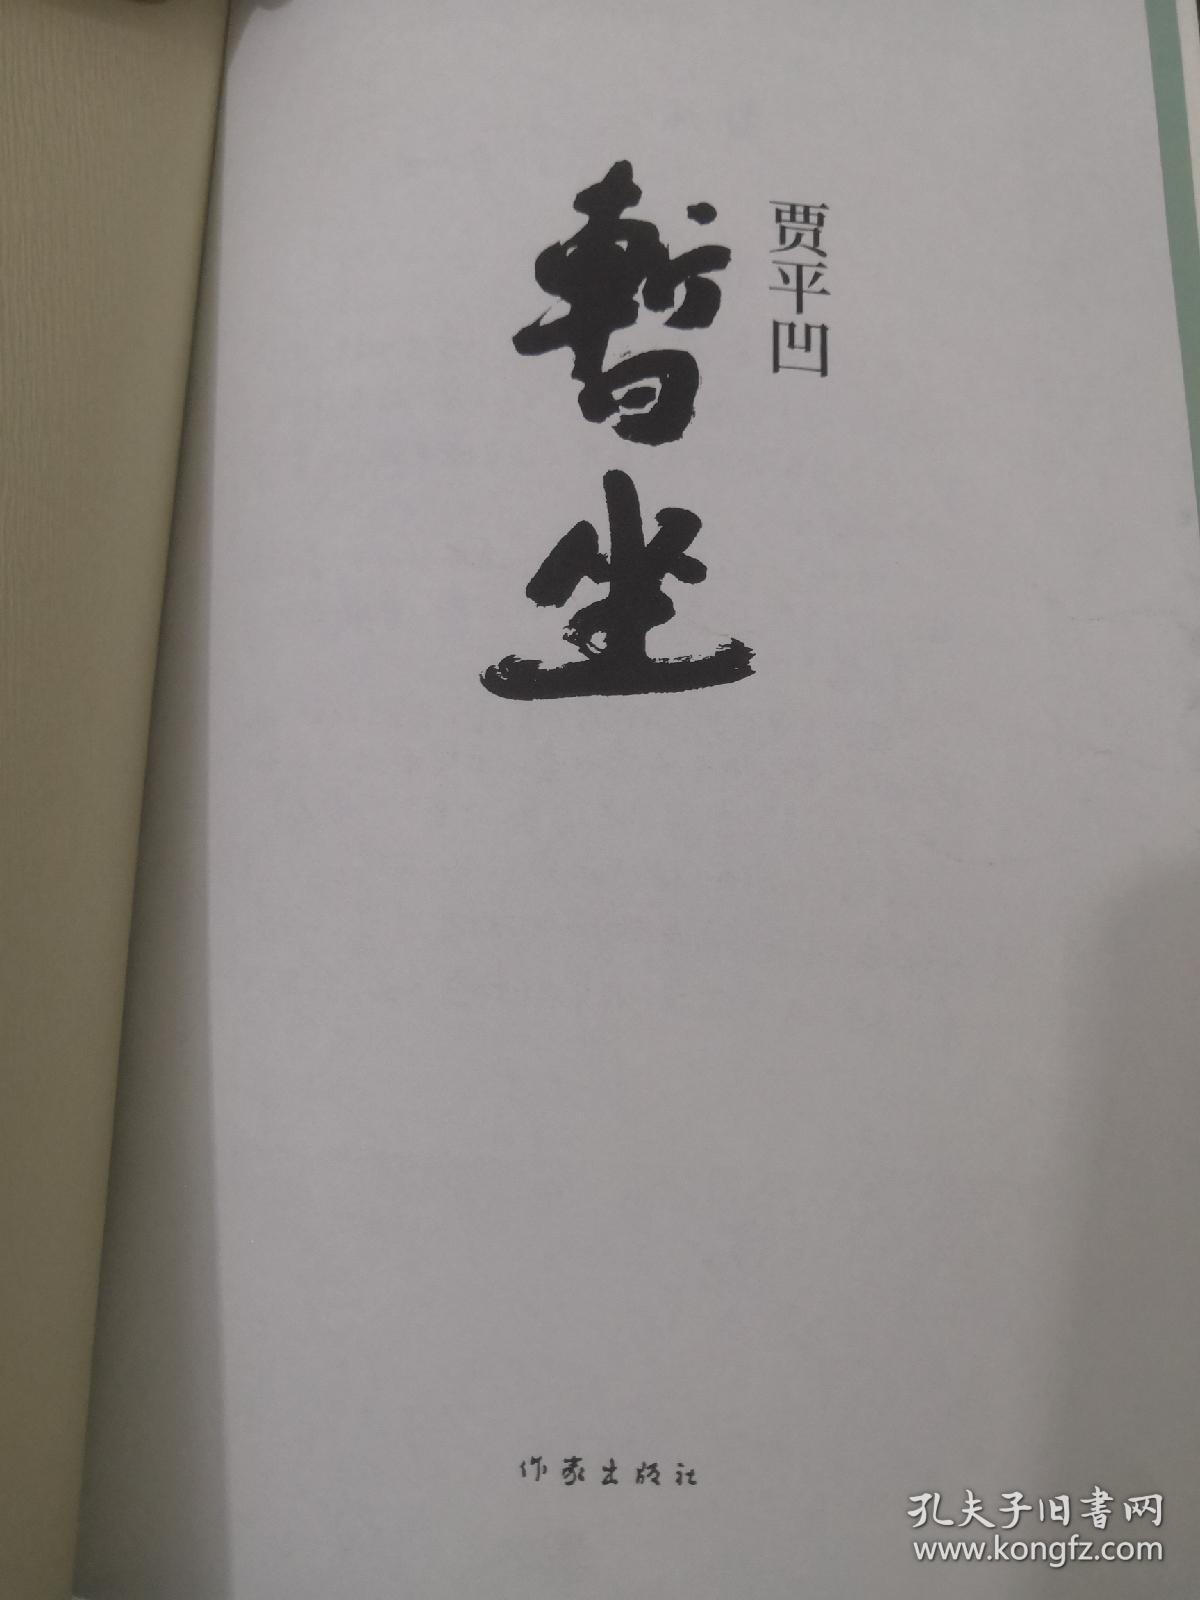 暫坐
贾平凹
作家出版社
孔夫子旧书网
www.kongfz.com